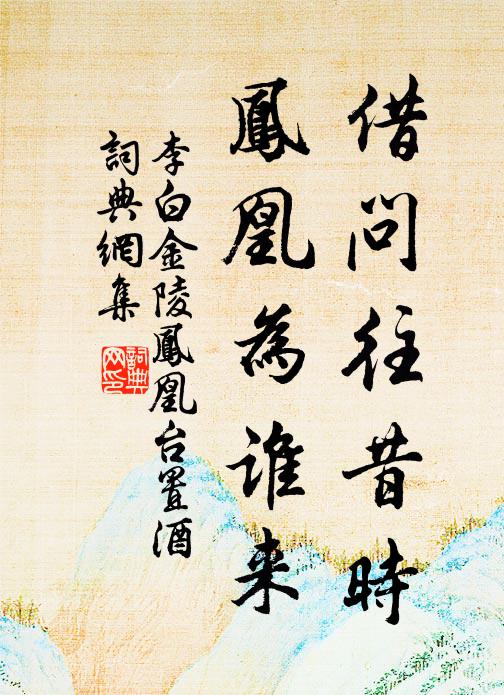 借问往昔時
鳳凰為谁来
李白金陵鳳凰台置酒
詞典網集
詞典网印